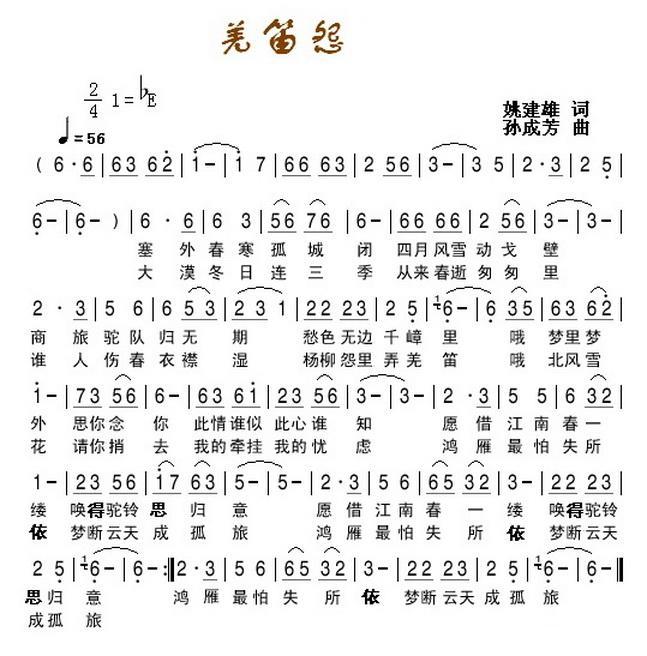 羌笛怨
2/4 1=♭E
姚建雄 词
♩=56
孙成芳 曲
( 6·6 | 63 62 | 1- | 1 7 | 66 63 | 2 56 | 3- | 3 5 | 2·3 | 2 5 |
6- | 6- ) | 6·6 | 6 3 | 56 76 | 6- | 66 66 | 2 56 | 3- | 3- |
塞外春寒孤城闭 四月风雪动戈壁
大漠冬日连三季 从来春逝匆匆里
2·3 | 5 6 | 6 53 | 23 1 | 22 23 | 2 5 | 16- | 6 35 | 63 62 |
商旅驼队归无期 愁色无边千嶂里 哦梦里梦
谁人伤春衣襟湿 杨柳怨里弄羌笛 哦北风雪
1- | 73 56 | 6- | 63 61 | 23 56 | 3- | 3- | 2·3 | 5 5 | 65 32 |
外 思你念你 此情谁似此心谁知 愿借江南春一
花 请你捎去 我的牵挂我的忧虑 鸿雁最怕失所
1- | 23 56 | 17 63 | 5- | 5- | 2·3 | 5 6 | 65 32 | 3- | 22 23 |
缕 唤得驼铃思归意 愿借江南春一缕 唤得驼铃
依 梦断云天成孤旅 鸿雁最怕失所依 梦断云天
2 5 | 16- | 6- :| 2·3 | 5 6 | 65 32 | 3- | 22 23 | 2 5 | 16- | 6- ||
思归意 鸿雁最怕失所依 梦断云天成孤旅
成孤旅